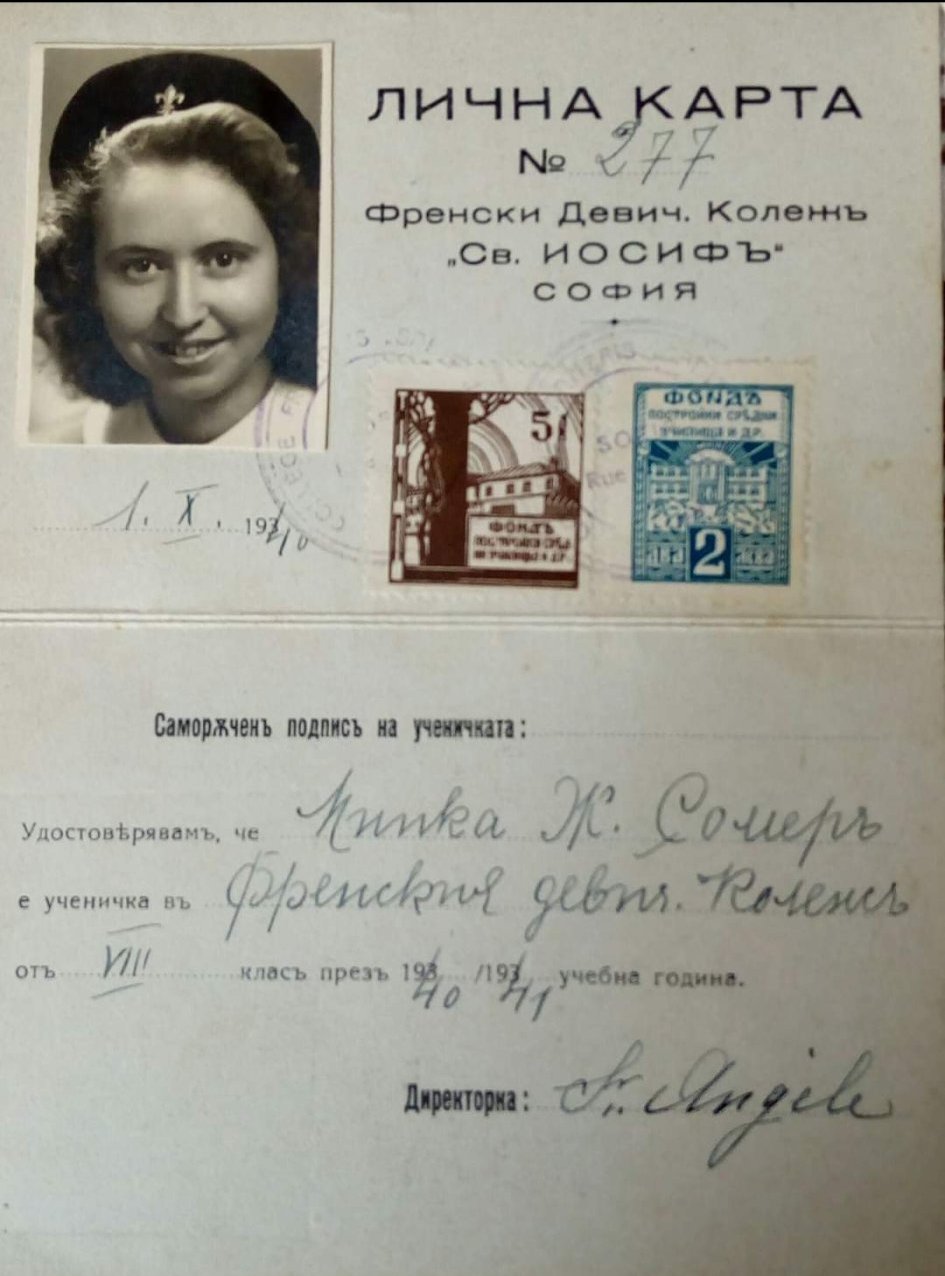 ЛИЧНА КАРТА
№ 277
Френски Девич. Колежъ
„Св. ИОСИФЪ“
СОФИЯ
1. X. 193/40
5
ФОНДЪ
ПОСТРОЙКИ СРѢД
НИ УЧИЛИЩА И ДР.
ФОНДЪ
ПОСТРОЙКИ СРѢДНИ
УЧИЛИЩА И ДР.
2
COLLEGE
Rue
Саморѫченъ подписъ на ученичката:
Удостовѣрявамъ, че Минка Ж. Сомеръ
е ученичка въ Френския девич. Колежъ
отъ VIII класъ презъ 193/40 /193/41 учебна година.
Директорка: Sr. Angèle